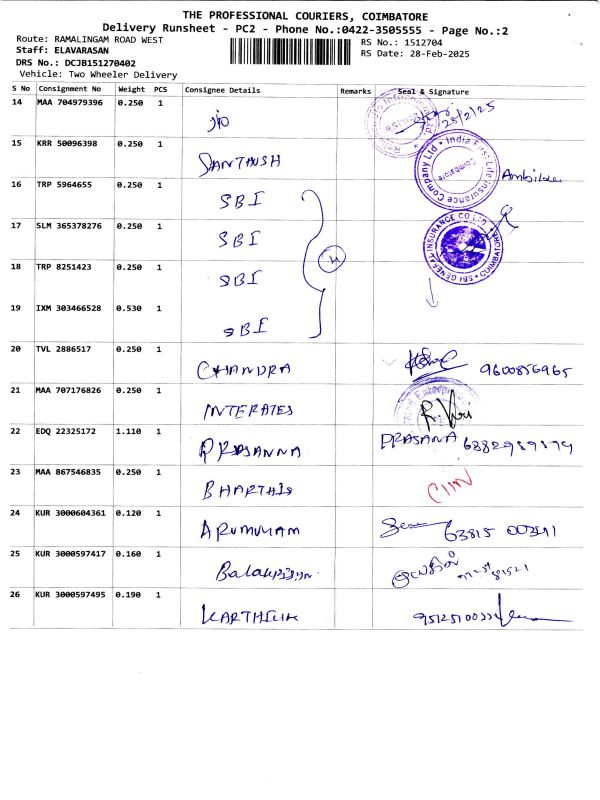 THE PROFESSIONAL COURIERS, COIMBATORE
Delivery Runsheet - PC2 - Phone No.:0422-3505555 - Page No.:2
Route: RAMALINGAM ROAD WEST
RS No.: 1512704
Staff: ELAVARASAN
RS Date: 28-Feb-2025
DRS No.: DCJB151270402
Vehicle: Two Wheeler Delivery
S No Consignment No Weight PCS Consignee Details Remarks Seal & Signature
14 MAA 704979396 0.250 1 Jio 25/2/25
15 KRR 50096398 0.250 1 SANTHUSH India First Life Insurance Company Ltd Coimbatore
16 TRP 5964655 0.250 1 SBI
17 SLM 365378276 0.250 1 SBI SBI GENERAL INSURANCE CO LTD COIMBATORE
18 TRP 8251423 0.250 1 SBI 4
19 IXM 303466528 0.530 1 SBI
20 TVL 2886517 0.250 1 CHANDRA 9600856965
21 MAA 707176826 0.250 1 INTERATES
22 EDQ 22325172 1.110 1 PRASANNA PRASANA
23 MAA 867546835 0.250 1 BHARTHI
24 KUR 3000604361 0.120 1 ARUMUGAM 63815
25 KUR 3000597417 0.160 1
26 KUR 3000597495 0.190 1 KARTHIK